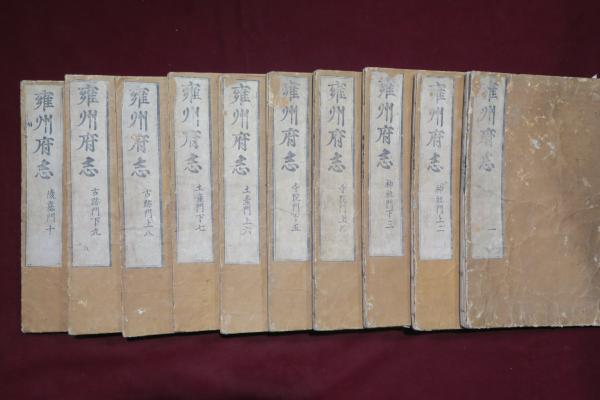 雍州府志 一
雍州府志 神社門上二
雍州府志 神社門下三
雍州府志 寺院門上四
雍州府志 寺院門下五
雍州府志 土産門上六
雍州府志 土産門下七
雍州府志 古跡門上八
雍州府志 古跡門下九
雍州府志 陵墓門十